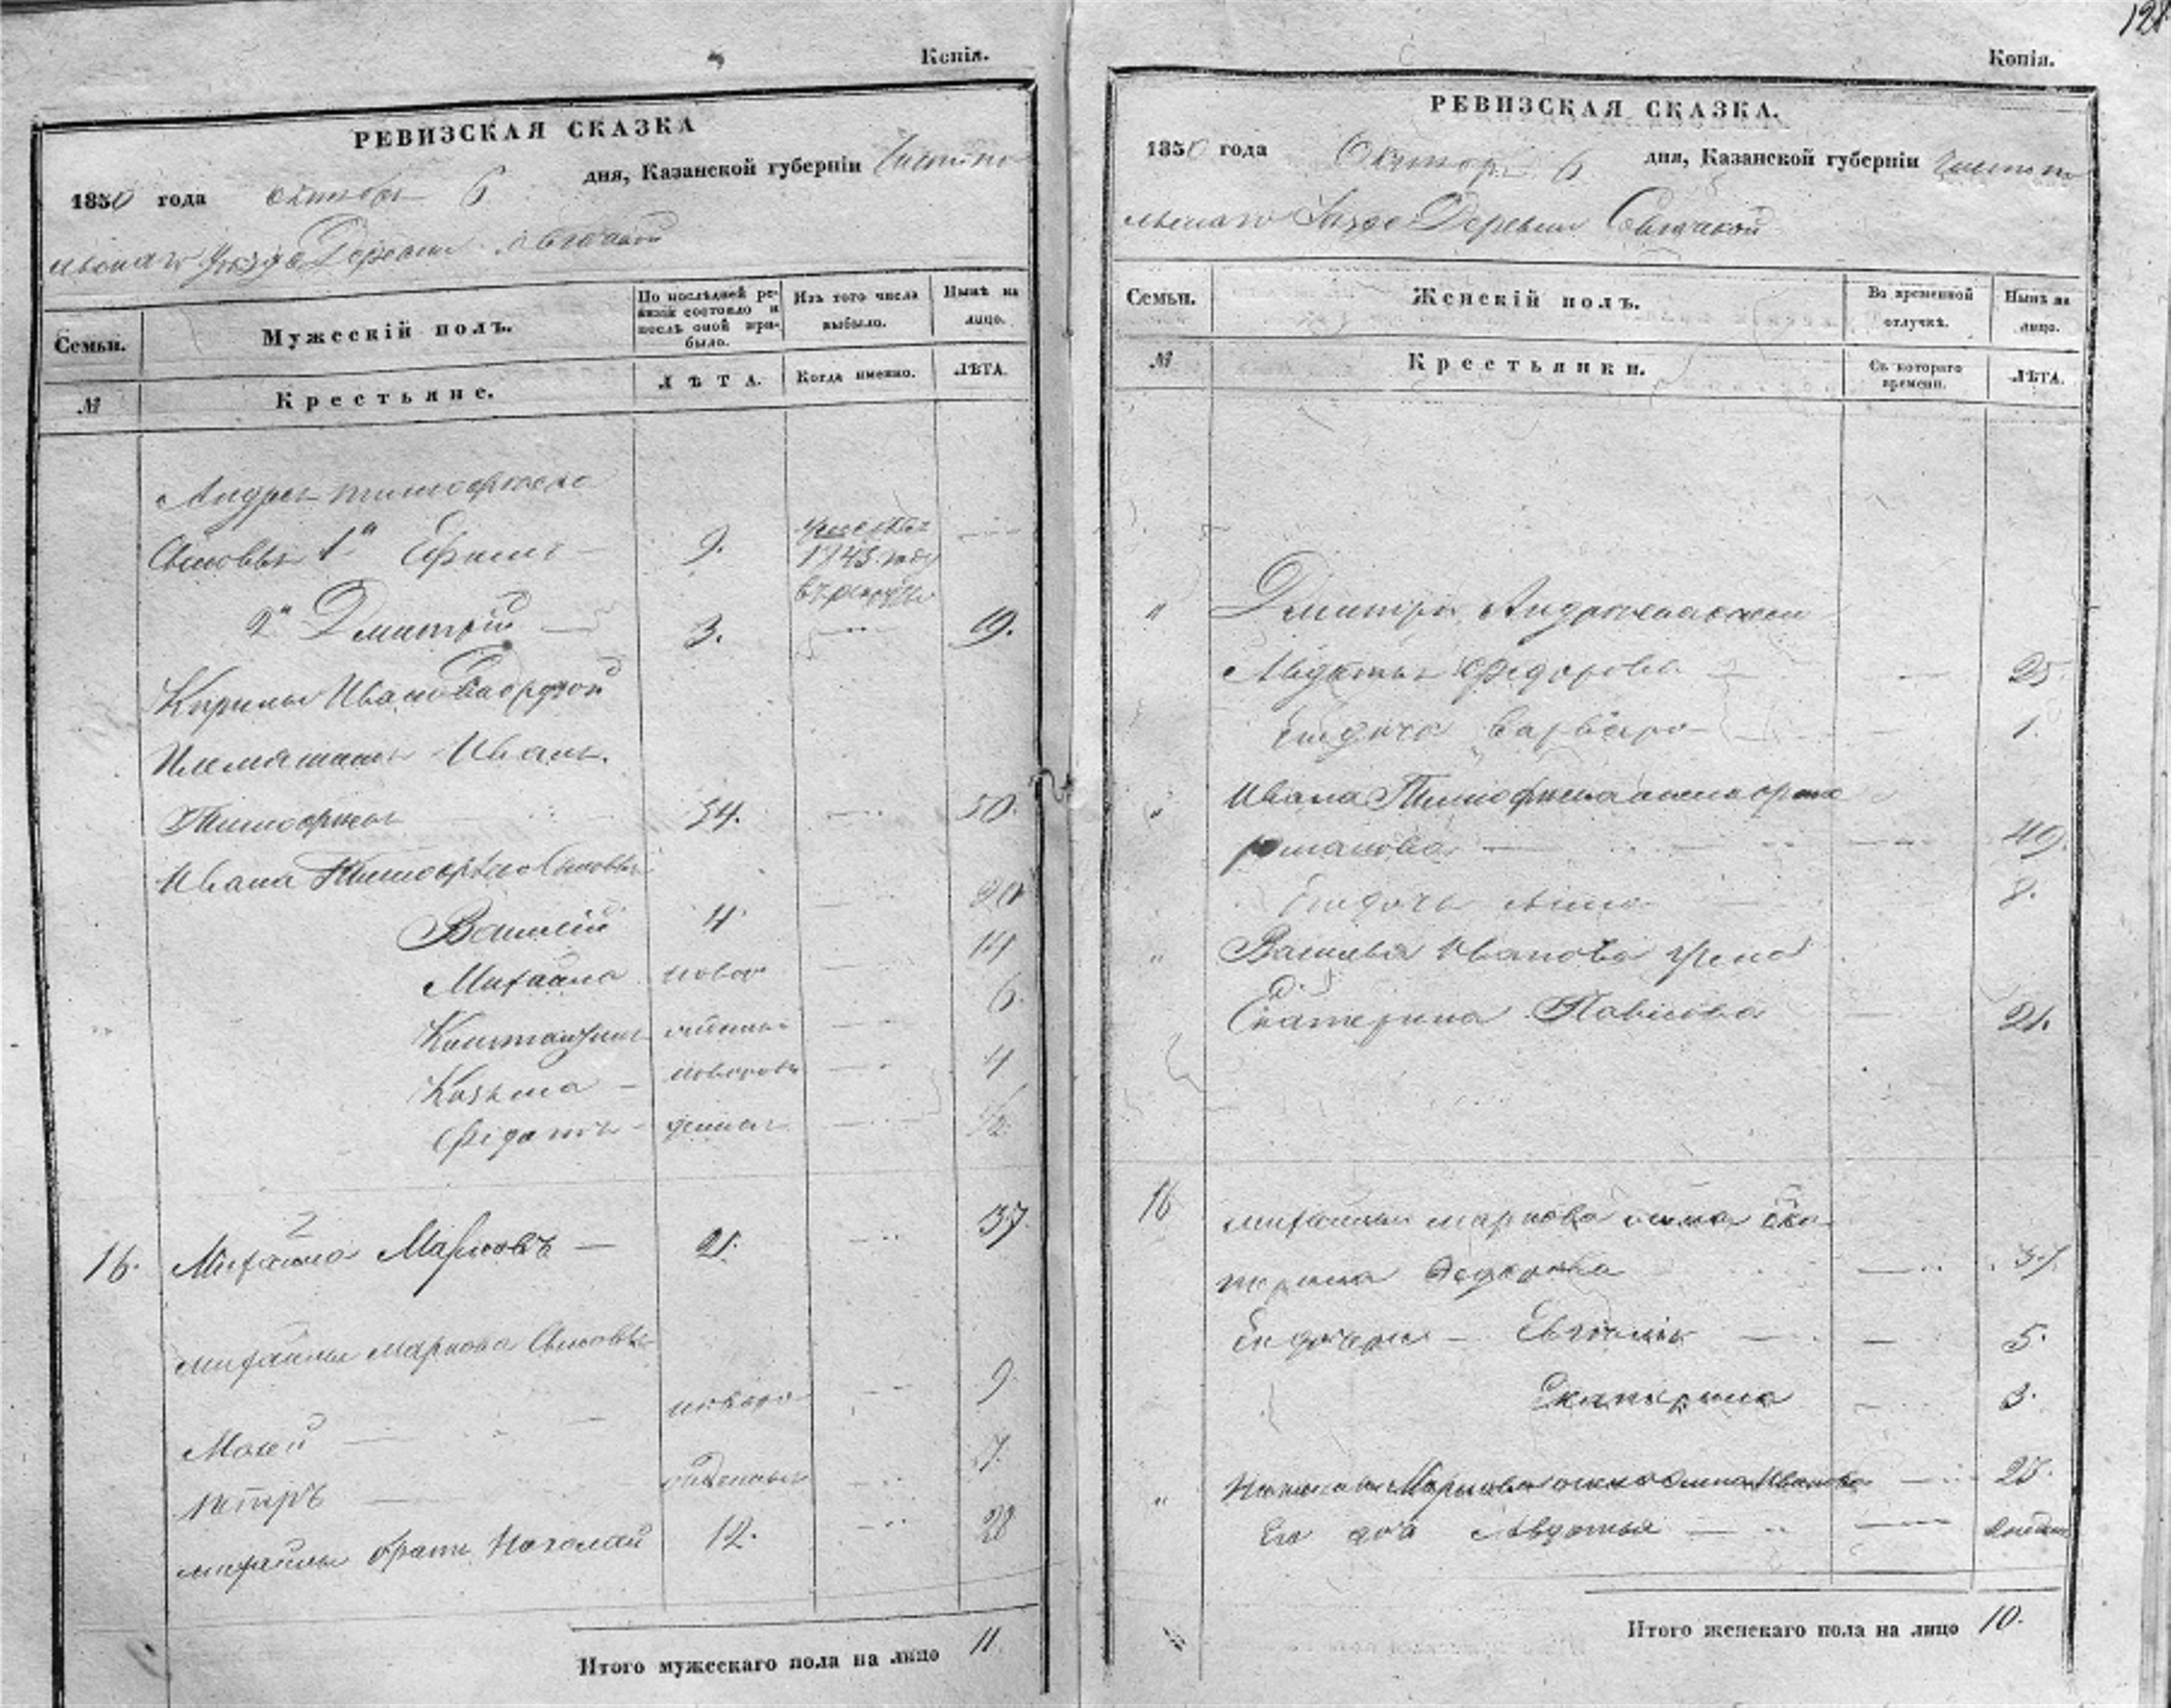 Копія.
РЕВИЗСКАЯ СКАЗКА
1850 года октября 6 дня, Казанской губерніи Чистопо
льскаго Уѣзда Деревни
Семьи.
Мужескій полъ.
По послѣдней ре-
визіи состояло и
послѣ оной при-
было.
Изъ того числа
выбыло.
Нынѣ на
лицо.
№
Крестьяне.
ЛѢТА.
Когда именно.
ЛѢТА.
Андрея Тимофѣева
Сыновья 1й Ефимъ 9.
1843 году
2й Дмитрій 3. 19.
Кирилы Иванова
Племянникъ Иванъ
Тимофѣевъ 34. 50.
Ивана Тимофѣева Сыновья
Василій 4 20
Михайла ново 14
Константинъ 6.
Козьма новорож 4
Федотъ денные 1/2
16. Михайла Марковъ 21. 37.
Михайлы Маркова Сыновья
Мосей новоро 9
Петръ жденные 7.
Михайлы братъ Николай 12. 28
Итого мужескаго пола на лицо 11.
121
Копія.
РЕВИЗСКАЯ СКАЗКА.
1850 года Октября 6 дня, Казанской губерніи Чистопо
льскаго Уѣзда Деревни
Семьи.
Женскій полъ.
Во временной
отлучкѣ.
Нынѣ на
лицо.
№
Крестьянки.
Съ котораго
времени.
ЛѢТА.
" Дмитрія Андреева жена
Авдотья Федорова 25
Его дочь Варвара 1.
" Ивана Тимофѣева жена
49.
Его дочь Анна 8.
" Василья Иванова жена
Екатерина Павлова 21.
16 Михайлы Маркова жена Ека
терина Федорова 37.
Его дочери Евгенія 5.
Екатерина 3.
" Николая Маркова жена Анна Иванова 25.
Его дочь Авдотья
Итого женскаго пола на лицо 10.